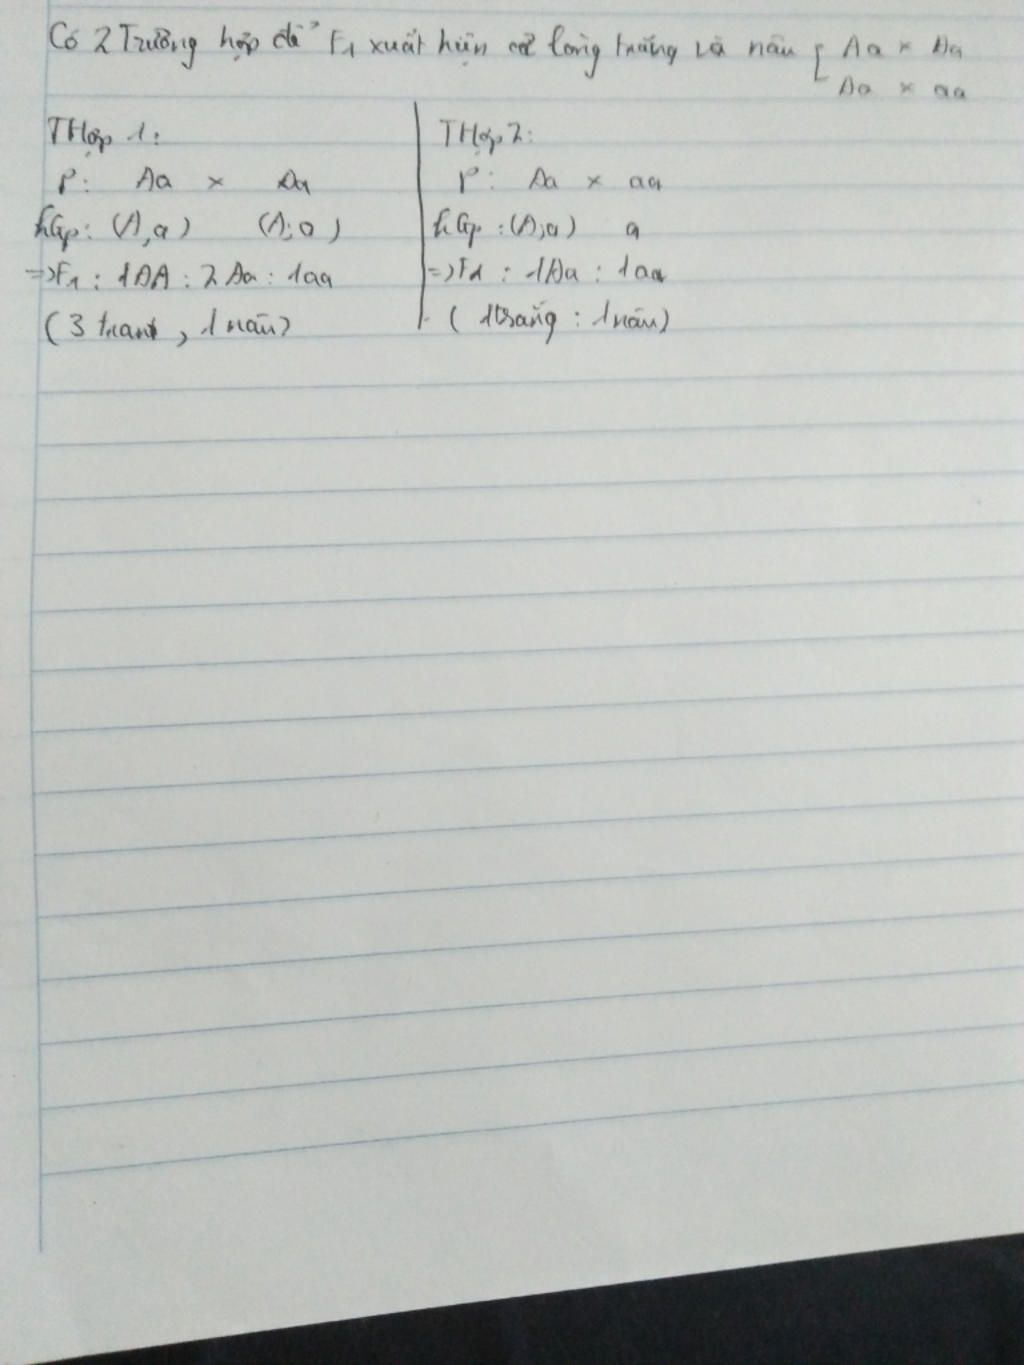 Có 2 Trường hợp để F1 xuất hiện cả lông trắng và nâu [ Aa × Aa
Aa × aa
THợp 1:
P: Aa × Aa
GP: (A,a) (A;a)
=> F1 : 1AA : 2 Aa : 1aa
(3 , 1 nâu)
THợp 2:
P: Aa × aa
GP : (A;a) a
=> F1 : 1Aa : 1aa
( 1trắng : 1nâu)